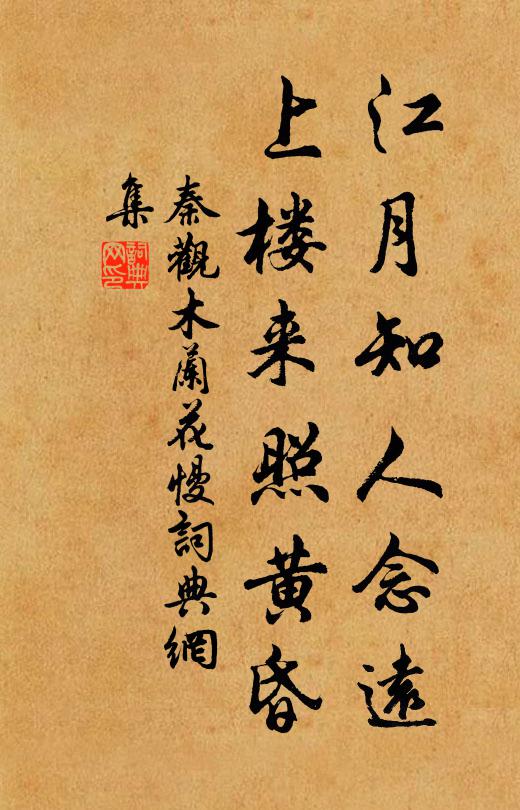 江月知人念遠
上楼来照黄昏
秦觀木蘭花慢詞典網
集
詞典网印